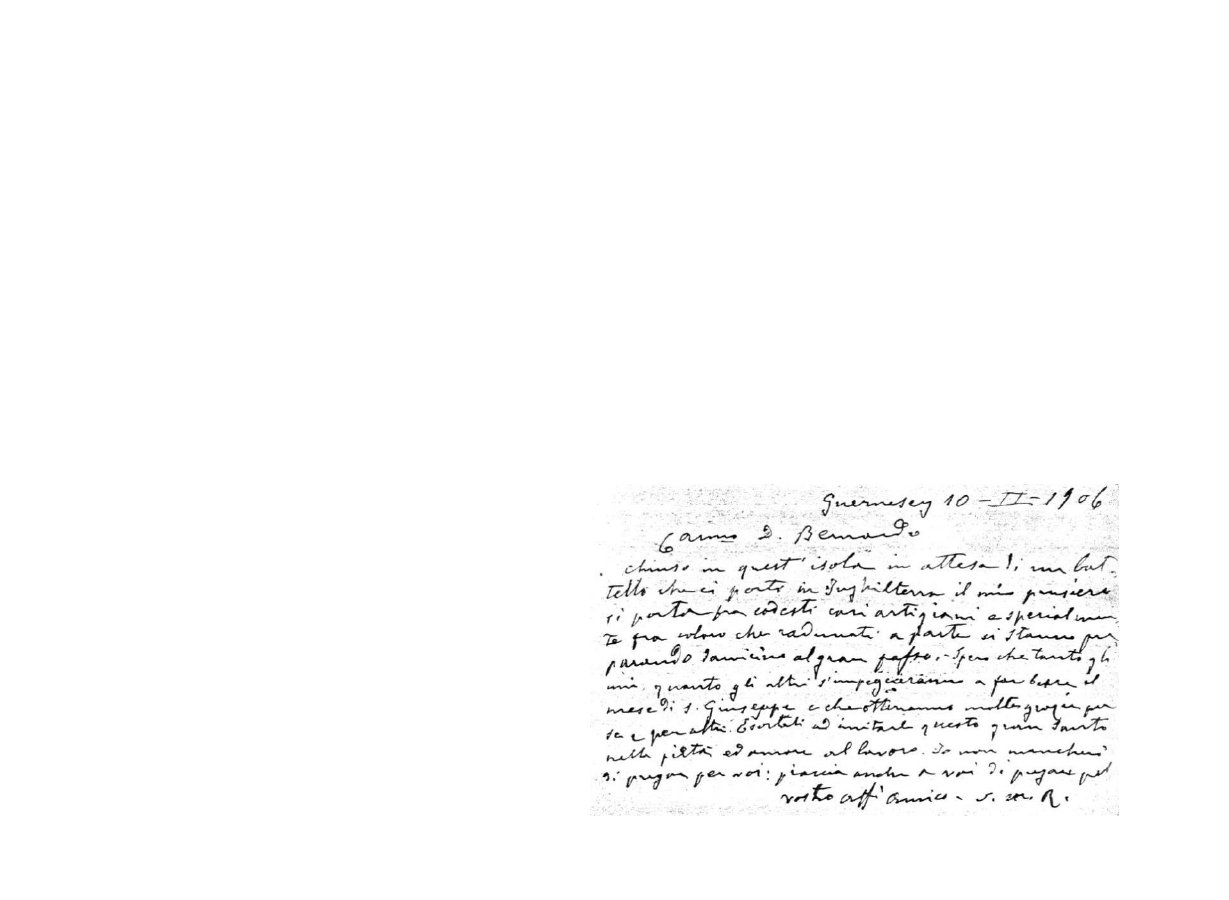 Guernesey 10 - II - 1906
Carmo D. Bernardo
chiuso in quest' isola in attesa di un bat-
tello che ci porti in Inghilterra il mio pensiero
si porta fra codesti cari artigiani e specialmen
te fra coloro che radunati a parte si stanno pre
parando da vicino al gran passo. - Spero che tanto gli
uni quanto gli altri s'impegneranno a far bene il
mese di S. Giuseppe e che otteranno molte grazie per
se e per altri. Esortali ad imitare questo gran Santo
nella pietà ed amore al lavoro. Io non mancherò
di pregar per voi: piaccia anche a voi di pregare pel
vostro aff. amico - S. M. R.